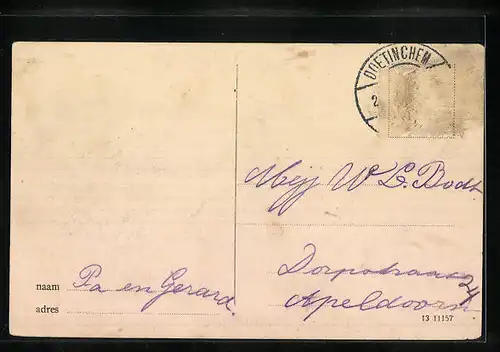 DOETINCHEM
2
Mej W L. Bodt
Dorpstraat 24
Apeldoorn
naam Pa en Gerard.
adres
13 11157